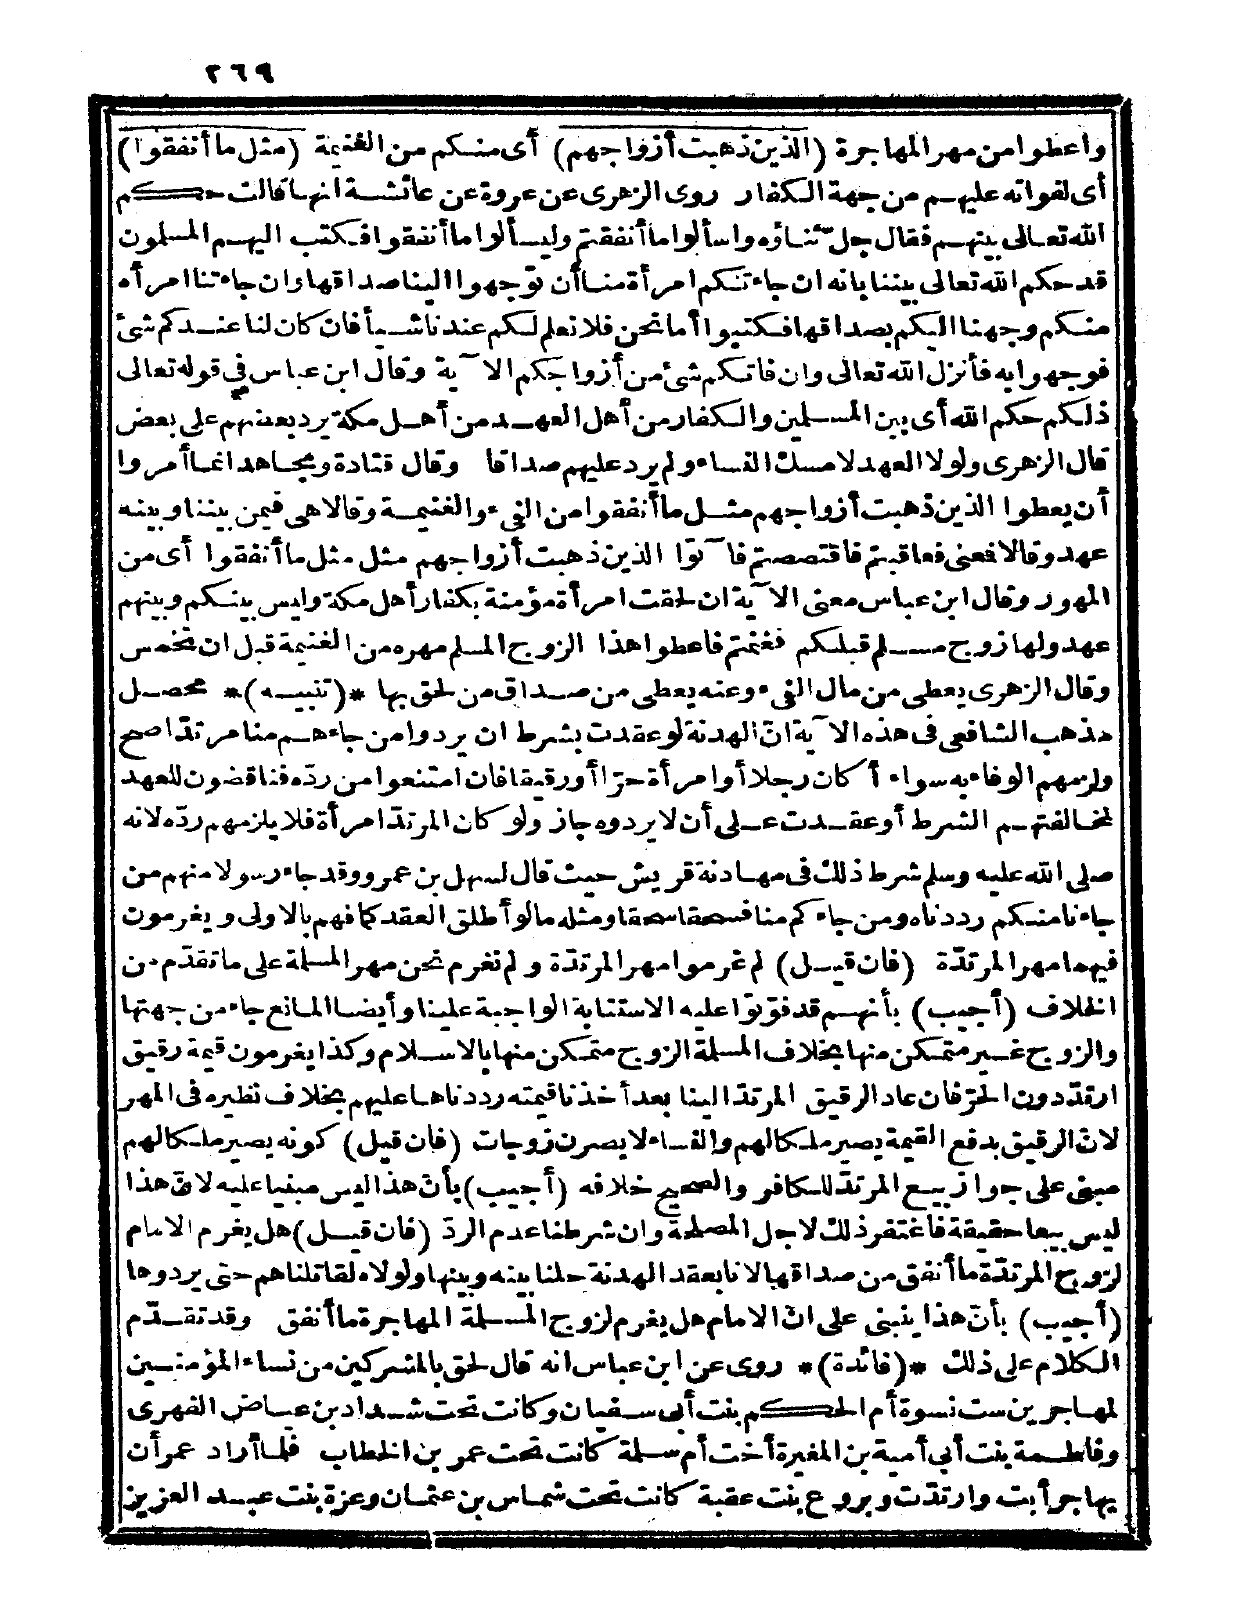 ٢٦٩
واعطوا من مهر المهاجرة (الذين ذهبت أزواجهم) أى منكم من الغنيمة (مثل ما أنفقوا)
أى لفواته عليهم من جهة الكفار روى الزهرى عن عروة عن عائشة انها قالت حكم
الله تعالى بينهم فقال جل ثناؤه واسألوا ما أنفقتم وليسألوا ما أنفقوا فكتب اليهم المسلمون
قد حكم الله تعالى بيننا بانه ان جاءتكم امرأة منا أن توجهوا الينا صداقها وان جاءتنا امرأه
منكم وجهنا اليكم بصداقها فكتبوا أما نحن فلا نعلم لكم عندنا شيأ فان كان لنا عندكم شئ
فوجهوا به فأنزل الله تعالى وان فاتكم شئ من أزواجكم الآية وقال ابن عباس فى قوله تعالى
ذلكم حكم الله أى بين المسلمين والكفار من أهل العهد من أهل مكة يرد بعضهم على بعض
قال الزهرى ولولا العهد لامسك النساء ولم يرد عليهم صداقا وقال قتادة ومجاهد انما أمروا
أن يعطوا الذين ذهبت أزواجهم مثل ما أنفقوا من الفىء والغنيمة وقالا هى فيمن بيننا وبينه
عهد وقالا فمعنى فعاقبتم فاقتصصتم فآتوا الذين ذهبت أزواجهم مثل مثل ما أنفقوا أى من
المهور وقال ابن عباس معنى الآية ان لحقت امرأة مؤمنة بكفار أهل مكة وليس بينكم وبينهم
عهد ولها زوج مسلم قبلكم فغنمتم فاعطوا هذا الزوج المسلم مهره من الغنيمة قبل ان تخمس
وقال الزهرى يعطى من مال الفىء وعنه يعطى من صداق من لحق بها *(تنبيه)* محصل
مذهب الشافعى فى هذه الآية انّ الهدنة لو عقدت بشرط ان يردوا من جاءهم منا مرتدّا صح
ولزمهم الوفاء به سواء أكان رجلا أو امرأة حرّا أو رقيقا فان امتنعوا من ردّه فناقضون للعهد
لمخالفتهم الشرط أو عقدت على أن لا يردوه جاز ولو كان المرتدّ امرأة فلا يلزمهم ردّه لانه
صلى الله عليه وسلم شرط ذلك فى مهادنة قريش حيث قال لسهل بن عمرو وقد جاء رسولا منهم من
جاءنا منكم رددناه ومن جاءكم منا فسحقا سحقا ومثله مالو أطلق العقد كما فهم بالاولى ويغرمون
فيهما مهر المرتدّة (فان قيل) لم غرموا مهر المرتدّة ولم نغرم نحن مهر المسلمة على ما تقدّم من
الخلاف (أجيب) بأنهم قد فوّتوا عليه الاستتابة الواجبة علينا وأيضا المانع جاء من جهتها
والزوج غير متمكن منها بخلاف المسلمة الزوج متمكن منها بالاسلام وكذا يغرمون قيمة رقيق
ارتدّ دون الحرّ فان عاد الرقيق المرتدّ الينا بعد أخذنا قيمته رددناها عليهم بخلاف نظيره فى المهر
لانّ الرقيق بدفع القيمة يصير ملكا لهم والنساء لا يصرن زوجات (فان قيل) كونه يصير ملكا لهم
مبنى على جواز بيع المرتدّ للكافر والصحيح خلافه (أجيب) بأنّ هذا ليس مبنيا عليه لانّ هذا
ليس بيعا حقيقة فاغتفر ذلك لاجل المصلحة وان شرطنا عدم الردّ (فان قيل) هل يغرم الامام
لزوج المرتدّة ما أنفق من صداقها لانا بعقد الهدنة حلنا بينه وبينها ولولاه لقاتلناهم حتى يردوها
(أجيب) بأنّ هذا ينبنى على انّ الامام هل يغرم لزوج المسلمة المهاجرة ما أنفق وقد تقدّم
الكلام على ذلك *(فائدة)* روى عن ابن عباس انه قال لحق بالمشركين من نساء المؤمنين
المهاجرين ست نسوة أم الحكم بنت أبى سفيان وكانت تحت شداد بن عياض الفهرى
وفاطمة بنت أبى أمية بن المغيرة أخت أم سلمة كانت تحت عمر بن الخطاب فلما أراد عمر أن
يهاجر أبت وارتدّت وبروع بنت عقبة كانت تحت شماس بن عثمان وعزة بنت عبد العزيز